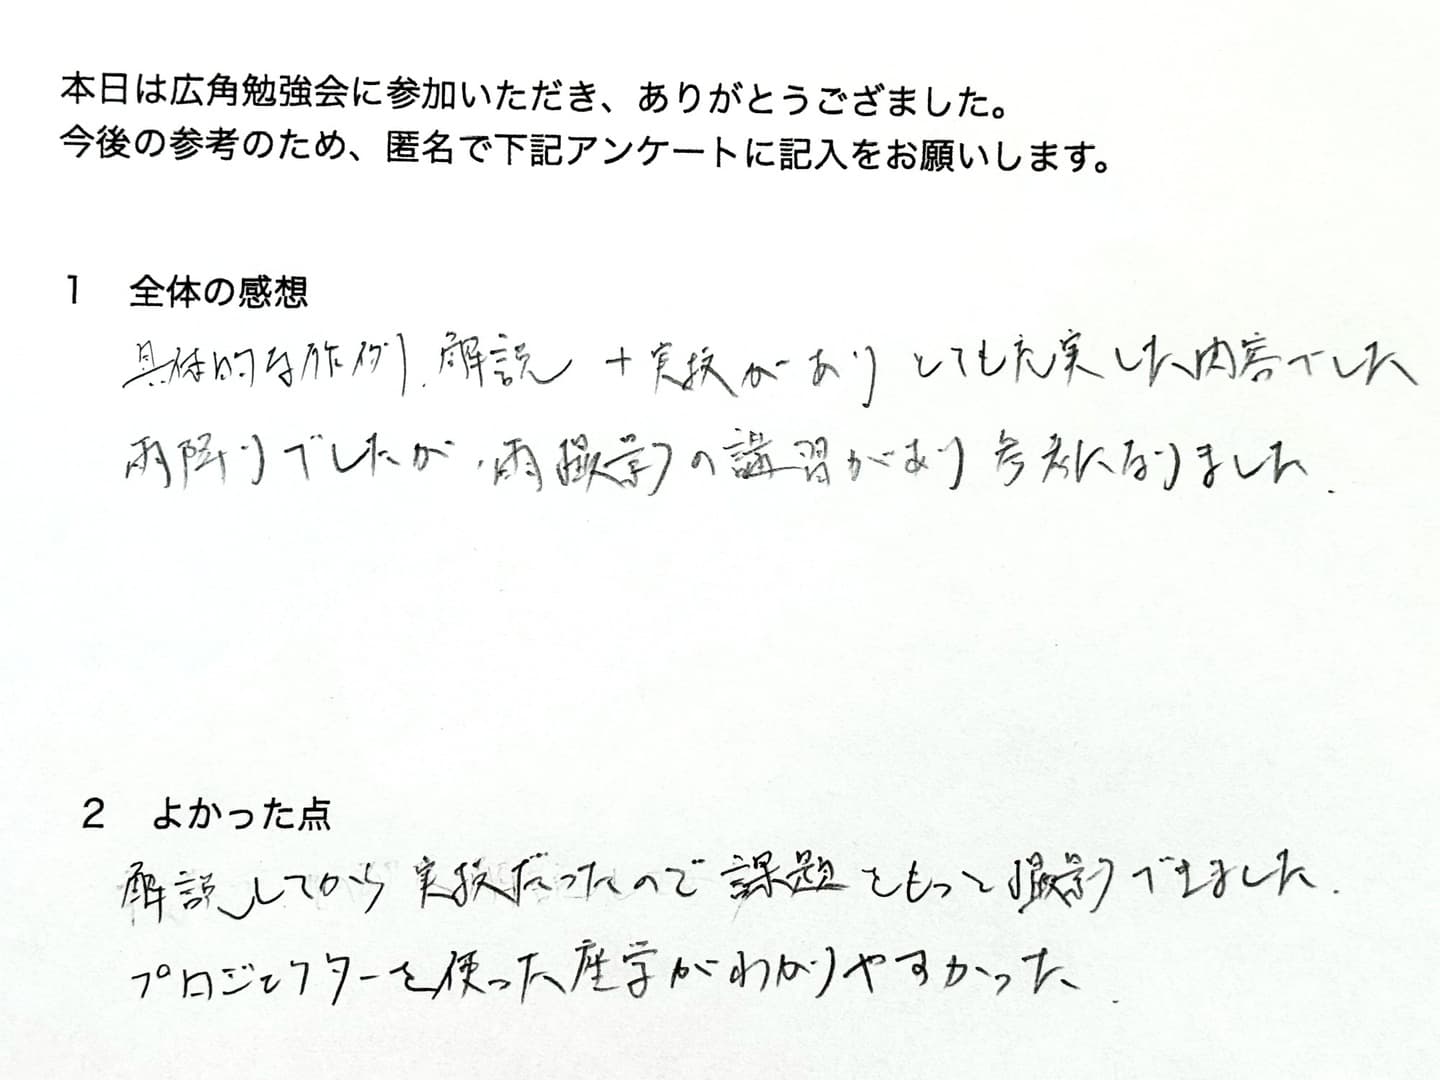 本日は広角勉強会に参加いただき、ありがとうございました。
今後の参考のため、匿名で下記アンケートに記入をお願いします。
1 全体の感想
具体的な作例、解説 + 実技があり とても充実した内容でした
雨降りでしたが、雨撮影の講習があり 参考になりました.
2 よかった点
解説してから 実技だったので 課題をもって撮影できました.
プロジェクターを使った座学がわかりやすかった.